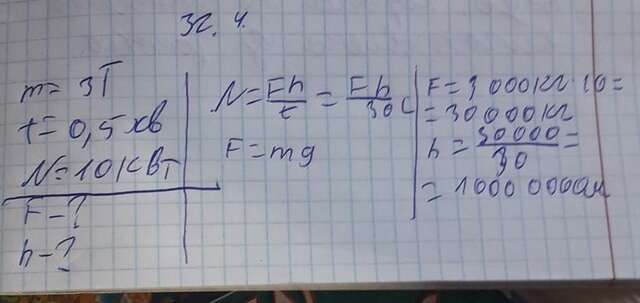 32. 4.
m= 3T
t=0,5хв
N=10КВт
F-?
h-?
N=Fh/t=Fh/30с
F=mg
F=3000кг·10=
=30000кг
h=30000/30=